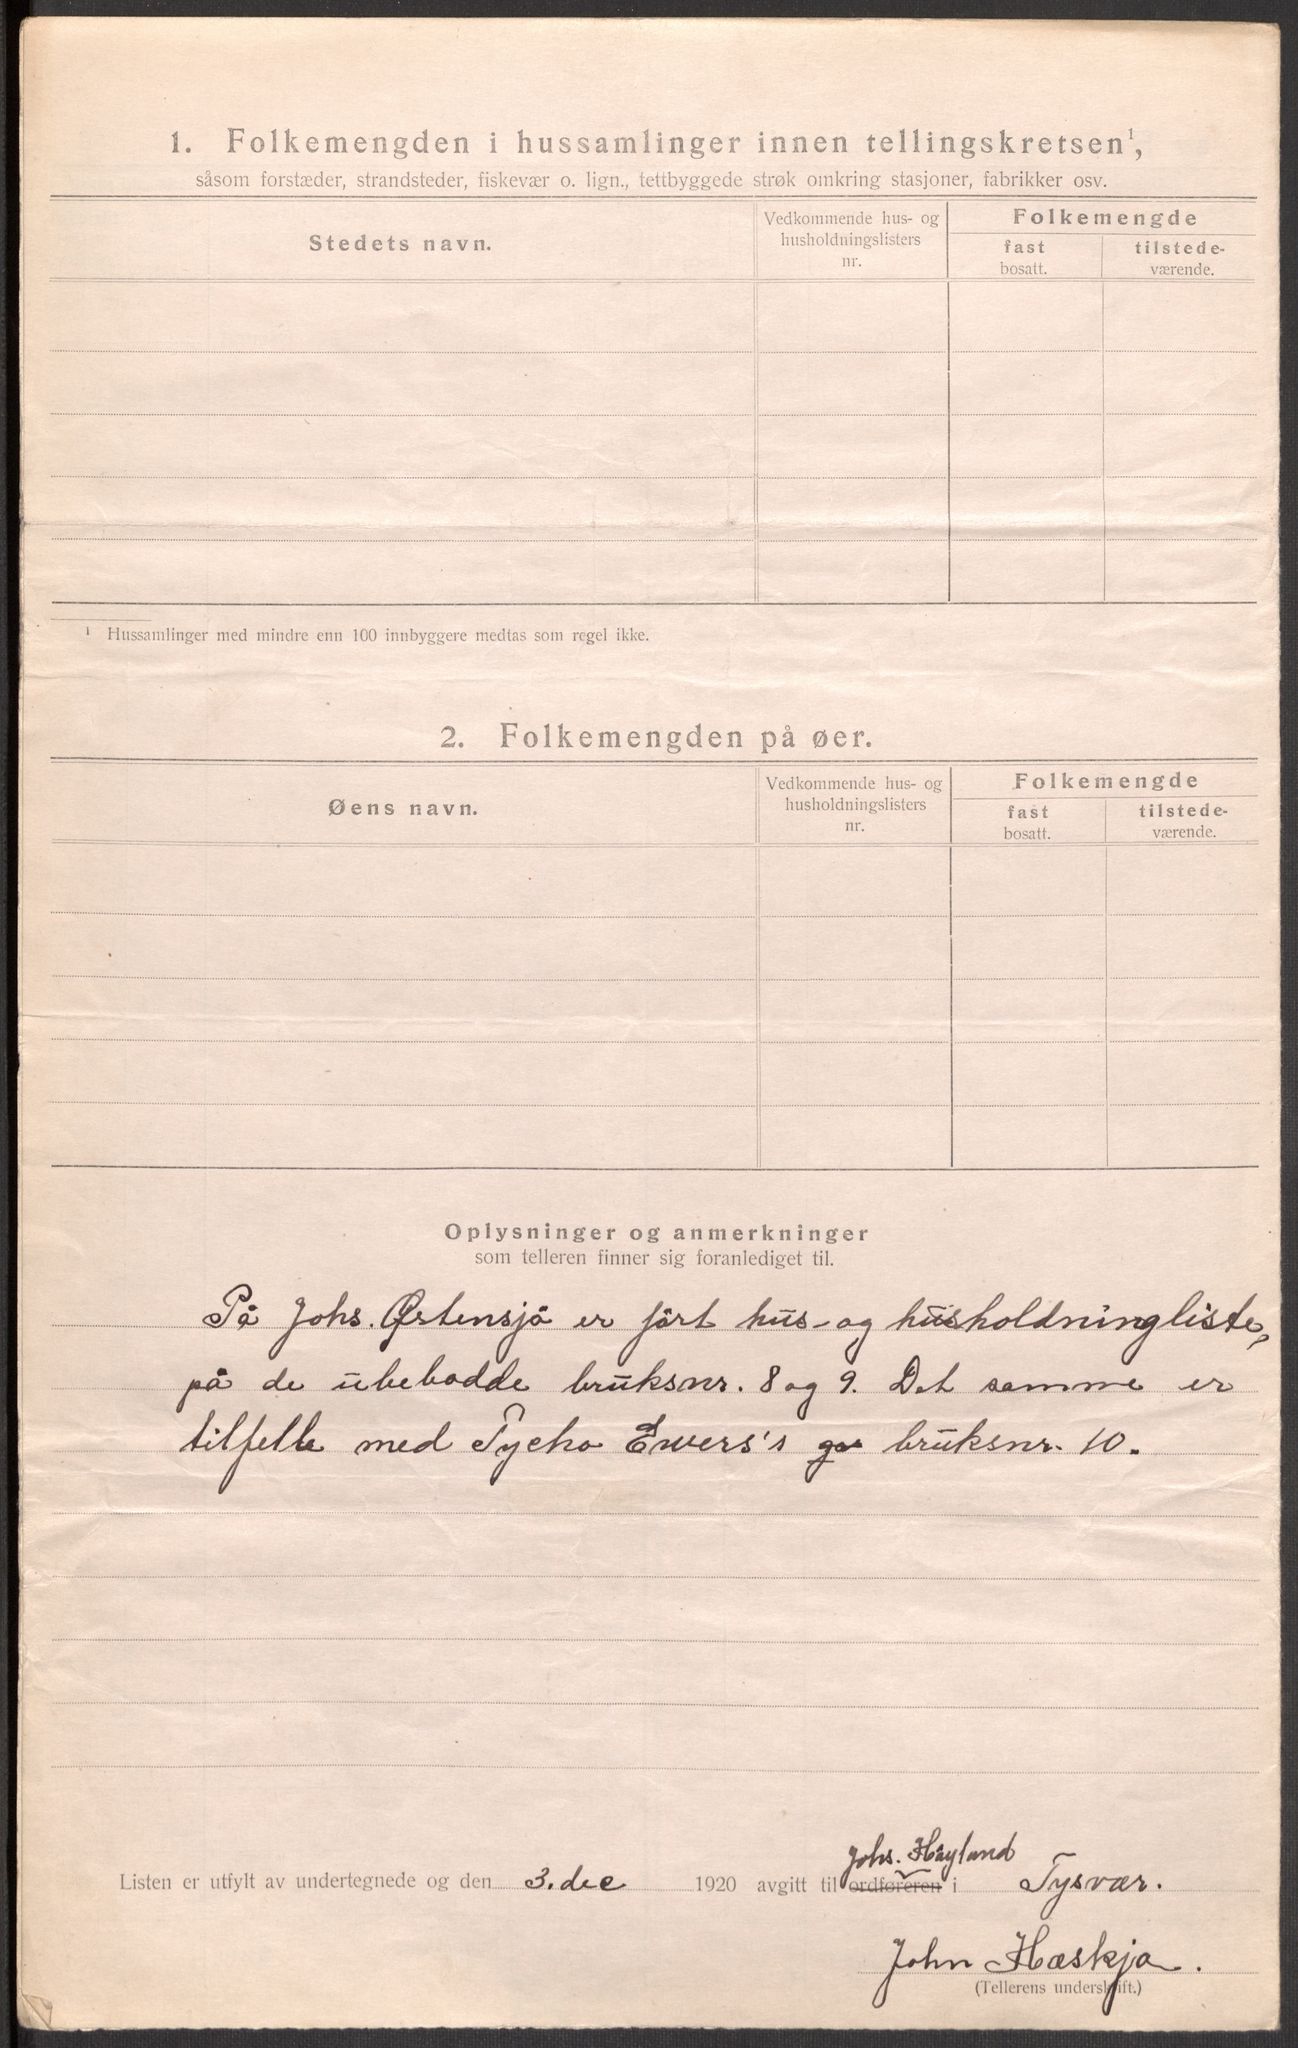 1. Folkemengden i hussamlinger innen tellingskretsen¹,
såsom forstæder, strandsteder, fiskevær o. lign., tettbyggede strøk omkring stasjoner, fabrikker osv.
Stedets navn.
Vedkommende hus- og
husholdningslisters
nr.
Folkemengde
fast
bosatt.
tilstede-
værende.
¹ Hussamlinger med mindre enn 100 innbyggere medtas som regel ikke.
2. Folkemengden på øer.
Øens navn.
Vedkommende hus- og
husholdningslisters
nr.
Folkemengde
fast
bosatt.
tilstede-
værende.
Oplysninger og anmerkninger
som telleren finner sig foranlediget til.
På Johs. Østensjö er fört hus- og husholdningliste,
på de ubebodde bruksnr. 8 og 9. Det samme er
tilfelle med Tycho Ewers's bruksnr. 10.
Johs. Høyland
Listen er utfylt av undertegnede og den 3. dec 1920 avgitt til ordføreren i Tysvær.
John Hæskja.
(Tellerens underskrift.)